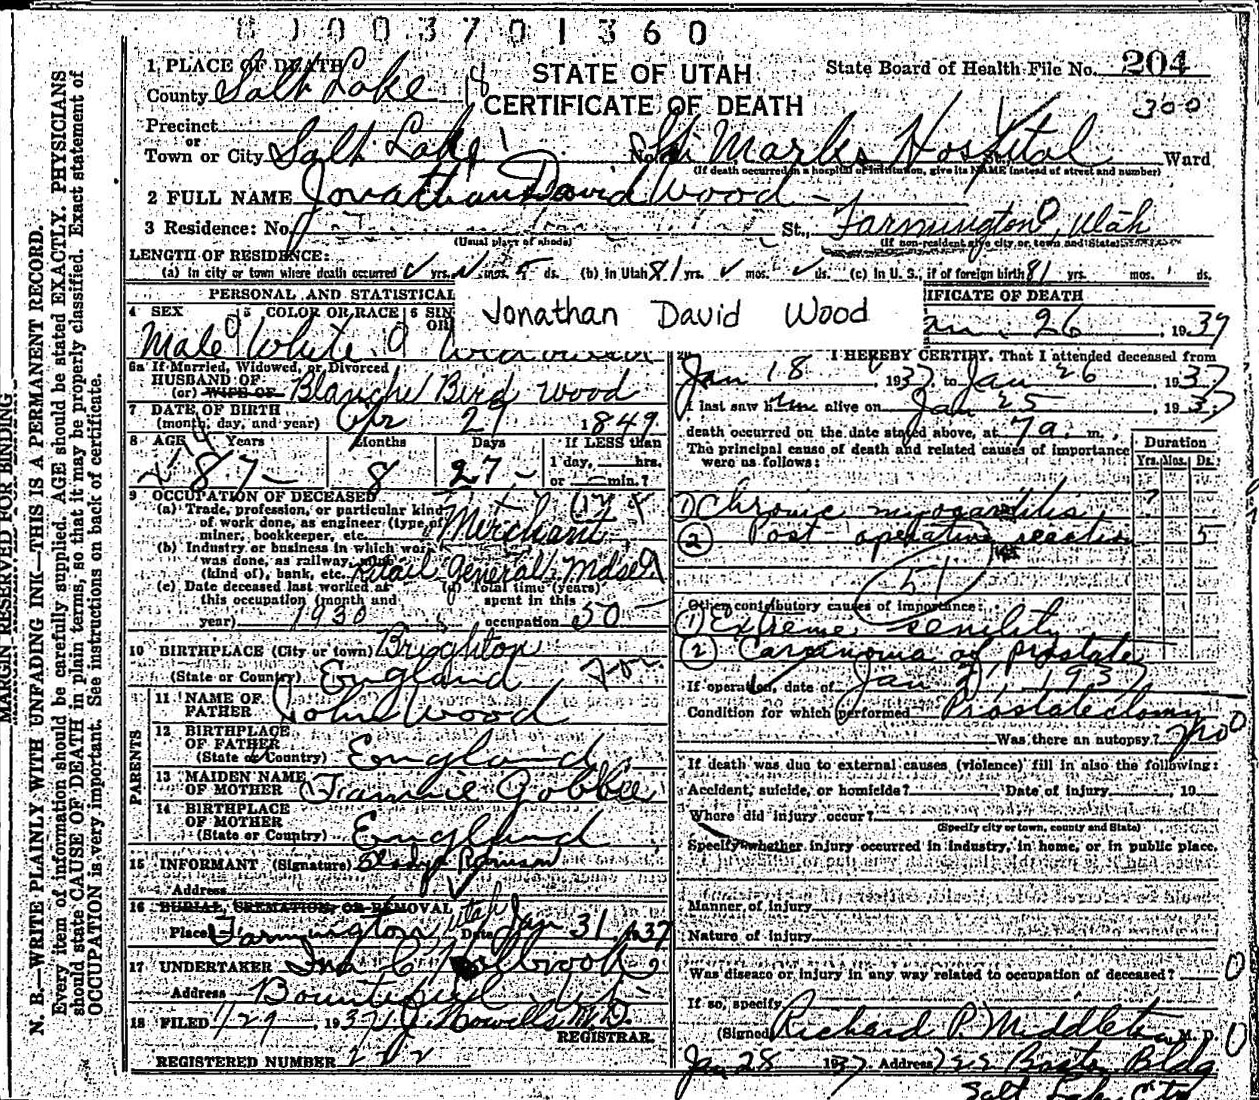 8 1 0 0 3 7 0 1 3 6 0
1. PLACE OF DEATH
STATE OF UTAH
CERTIFICATE OF DEATH
State Board of Health File No. 204
300
County Salt Lake 18
Precinct
or
Town or City Salt Lake No. St. Marks Hospital St. Ward
(If death occurred in a hospital or institution, give its NAME instead of street and number)
2 FULL NAME Jonathan David Wood
3 Residence: No. St., Farmington, Utah
(Usual place of abode) (If non-resident give city or town and State)
LENGTH OF RESIDENCE:
(a) In city or town where death occurred yrs. mos. 5 ds. (b) In Utah 81 yrs. mos. ds. (c) In U. S., if of foreign birth 81 yrs. mos. ds.
PERSONAL AND STATISTICAL
Jonathan David Wood
4 SEX 5 COLOR OR RACE 6 SIN
OR
Male White
6a If Married, Widowed, or Divorced
HUSBAND OF
(or) WIFE OF Blanche Bird Wood
7 DATE OF BIRTH
(month, day, and year) Apr 29 1849
8 AGE Years Months Days If LESS than
1 day, hrs.
or min.?
87 8 27
9 OCCUPATION OF DECEASED
(a) Trade, profession, or particular kind
of work done, as engineer (type of)
miner, bookkeeper, etc. Merchant
(b) Industry or business in which work
was done, as railway, mine
(kind of), bank, etc. Retail General Mdse
(c) Date deceased last worked at
this occupation (month and
year) 1930
(d) Total time (years)
spent in this
occupation 50
10 BIRTHPLACE (City or town) Brighton
(State or Country) England
PARENTS
11 NAME OF
FATHER John Wood
12 BIRTHPLACE
OF FATHER
(State or Country) England
13 MAIDEN NAME
OF MOTHER Fannie Gobbie
14 BIRTHPLACE
OF MOTHER
(State or Country) England
15 INFORMANT (Signature)
Address
16 BURIAL, CREMATION, OR REMOVAL
Place Farmington Utah Date Jan 31, 1937
17 UNDERTAKER
Address Bountiful
18 FILED 1/29, 1937 M.D.
REGISTRAR.
REGISTERED NUMBER
IFICATE OF DEATH
an. 26, 1937
I HEREBY CERTIFY, That I attended deceased from
Jan 18, 1937 to Jan 26 1937
I last saw him alive on Jan 25 1937
death occurred on the date stated above, at 7 a. m.
The principal cause of death and related causes of importance
were as follows:
Duration
Yrs. Mos. Ds.
1) Chronic myocarditis ?
2 Post-operative reaction 5
51
Other contributory causes of importance:
1 Extreme senility
2 Carcinoma of prostate
If operation, date of Jan 1937
Condition for which performed Prostatectomy
Was there an autopsy? no
If death was due to external causes (violence) fill in also the following:
Accident, suicide, or homicide? Date of injury, 19
Where did injury occur?
(Specify city or town, county and State)
Specify whether injury occurred in industry, in home, or in public place.
Manner of injury
Nature of injury
Was disease or injury in any way related to occupation of deceased? 0
If so, specify
(Signed) Richard P. Middleton, M. D.
Jan 28 1937 Address Boston Bldg
Salt Lake City
MARGIN RESERVED FOR BINDING
N. B.—WRITE PLAINLY WITH UNFADING INK—THIS IS A PERMANENT RECORD.
Every item of information should be carefully supplied. AGE should be stated EXACTLY. PHYSICIANS
should state CAUSE OF DEATH in plain terms, so that it may be properly classified. Exact statement of
OCCUPATION is very important. See instructions on back of certificate.